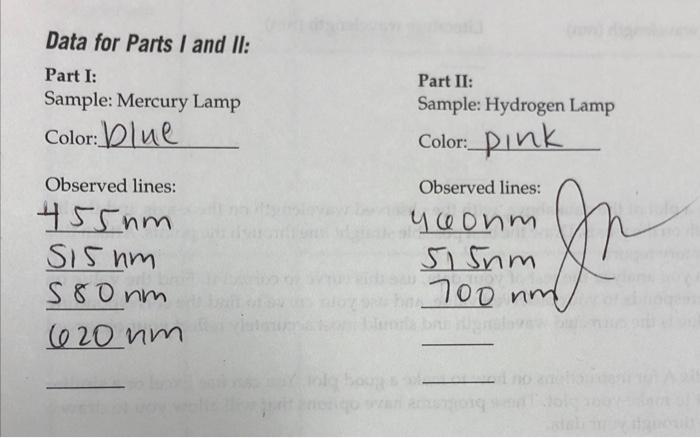 Data for Parts I and II:
Part I:
Sample: Mercury Lamp
Color: blue
Observed lines:
455nm
515 nm
580 nm
620 nm
Part II:
Sample: Hydrogen Lamp
Color: pink
Observed lines:
460nm
515nm
700 nm